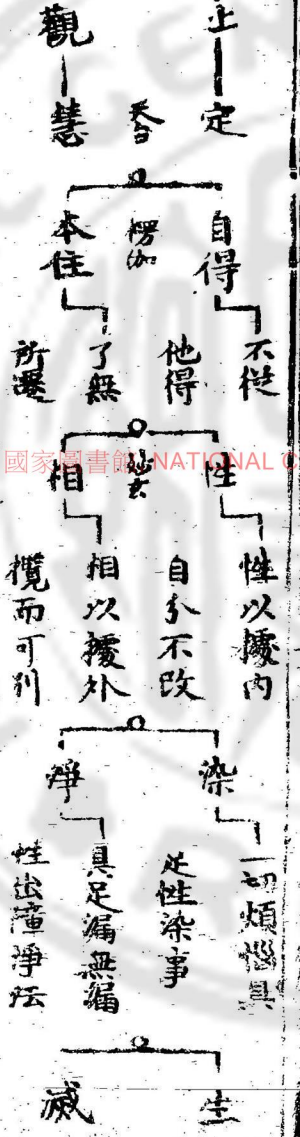 止 定
天台
觀 慧
自得 不從他得
楞伽
本住 了無所遷
性 性以據內自分不改
妙玄
相 相以據外攬而可別
染 一切煩惱具足性染事
淨 具足漏無漏性出障淨法
生
滅
國家圖書館 NATIONAL C